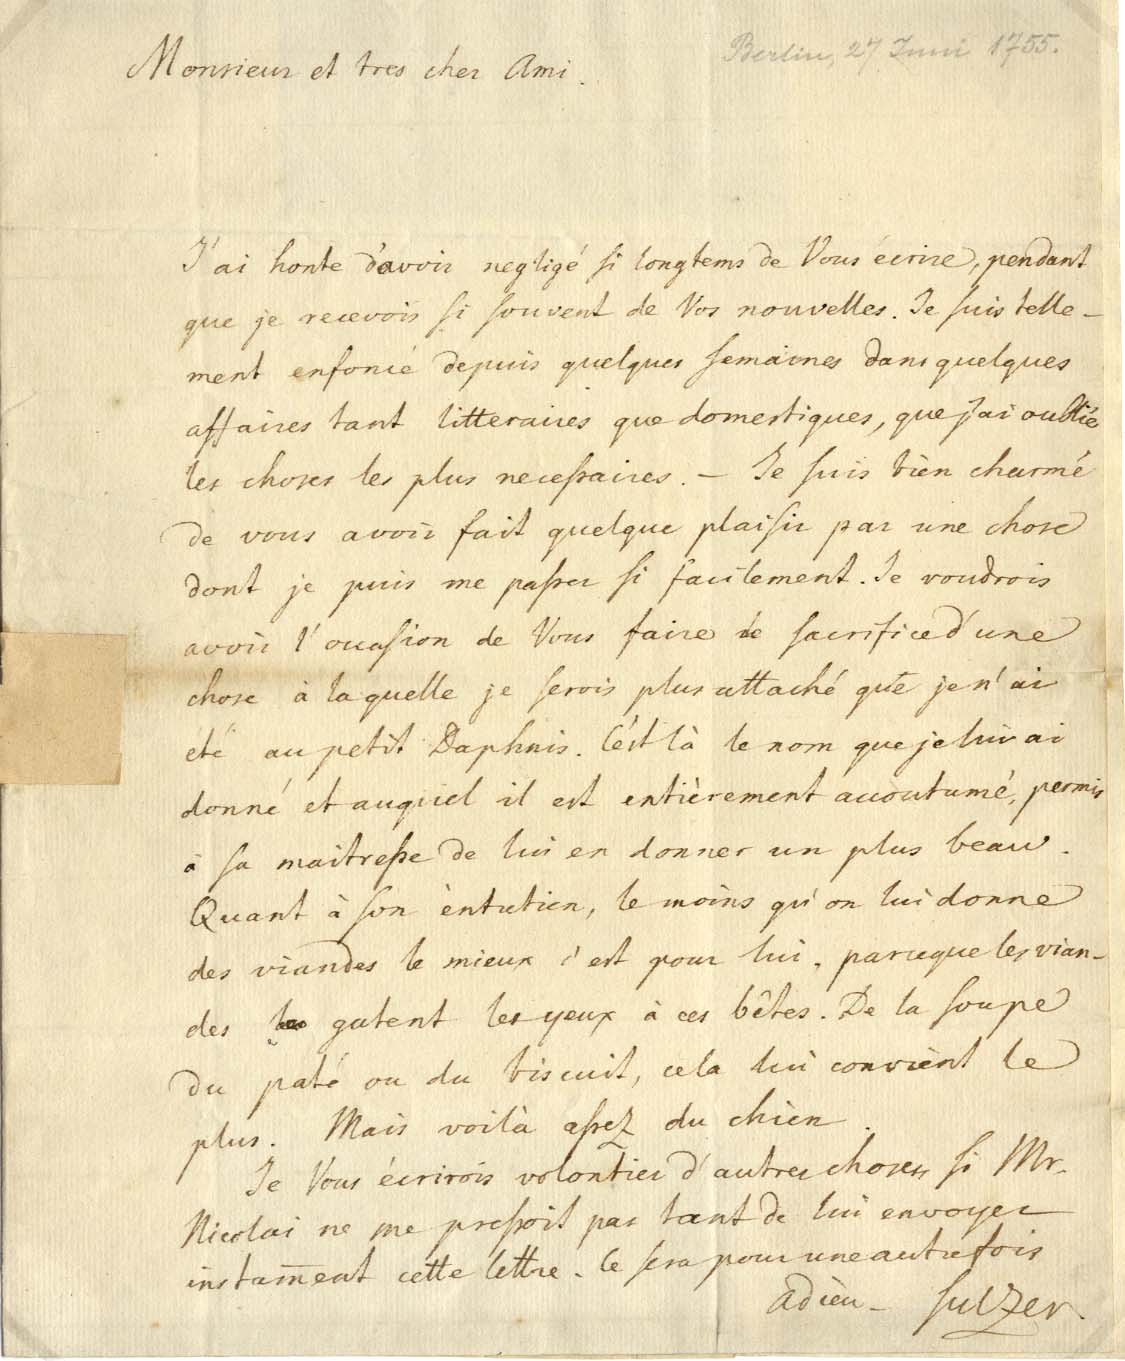 Berlin, 27 Juni 1755.
Monsieur et tres cher Ami.
J'ai honte d'avoir negligé si longtems de Vous écrire, pendant
que je recevois si souvent de Vos nouvelles. Je suis telle-
ment enfoncé depuis quelques semaines dans quelques
affaires tant litteraires que domestiques, que j'ai oublié
les choses les plus necessaires. — Je suis bien charmé
de vous avoir fait quelque plaisir par une chose
dont je puis me passer si facilement. Je voudrois
avoir l'occasion de Vous faire le sacrifice d'une
chose à laquelle je serois plus attaché que je n'ai
été au petit Daphnis. C'est là le nom que je lui ai
donné et auquel il est entièrement accoutumé, permis
à sa maitresse de lui en donner un plus beau.
Quant à son entretien, le moins qu'on lui donne
des viandes le mieux c'est pour lui, parceque les vian-
des gatent les yeux à ces bêtes. De la soupe
du paté ou du biscuit, cela lui convient le
plus. Mais voilà assez du chien.
Je Vous écrirois volontier d'autres choses, si Mr.
Nicolai ne me pressoit pas tant de lui envoyer
instament cette lettre. Ce sera pour une autre fois
adieu — Sulzer.